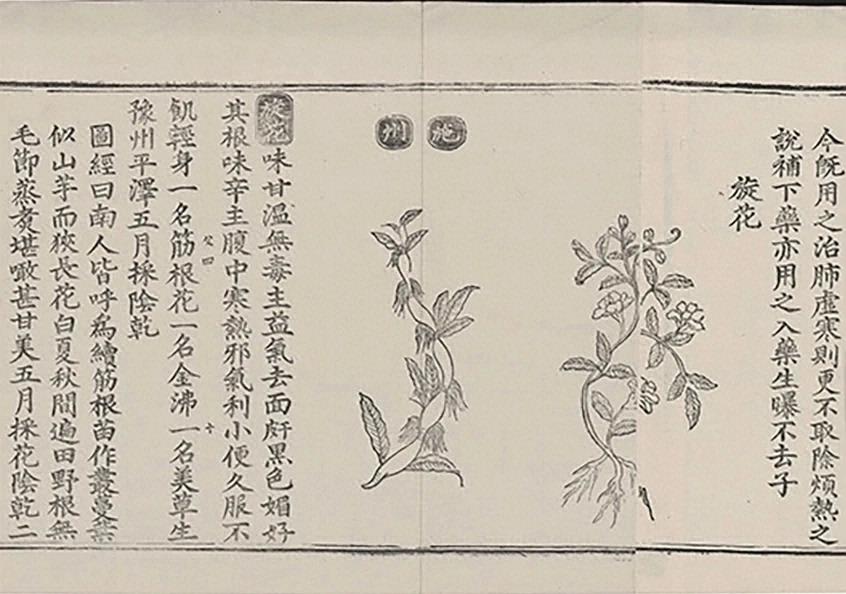 今旣用之治肺虛寒則更不取除煩熱之
說補下藥亦用之入藥生曝不去子
旋花
施州
旋花味甘溫無毒主益氣去面皯黑色媚好
其根味辛主腹中寒熱邪氣利小便久服不
飢輕身一名筋根花一名金沸一名美草生
豫州平澤五月採陰乾
圖經曰南人皆呼爲續筋根苗作叢蔓葉
似山芋而狹長花白夏秋間遍田野根無
毛節蒸煑堪噉甚甘美五月採花陰乾二